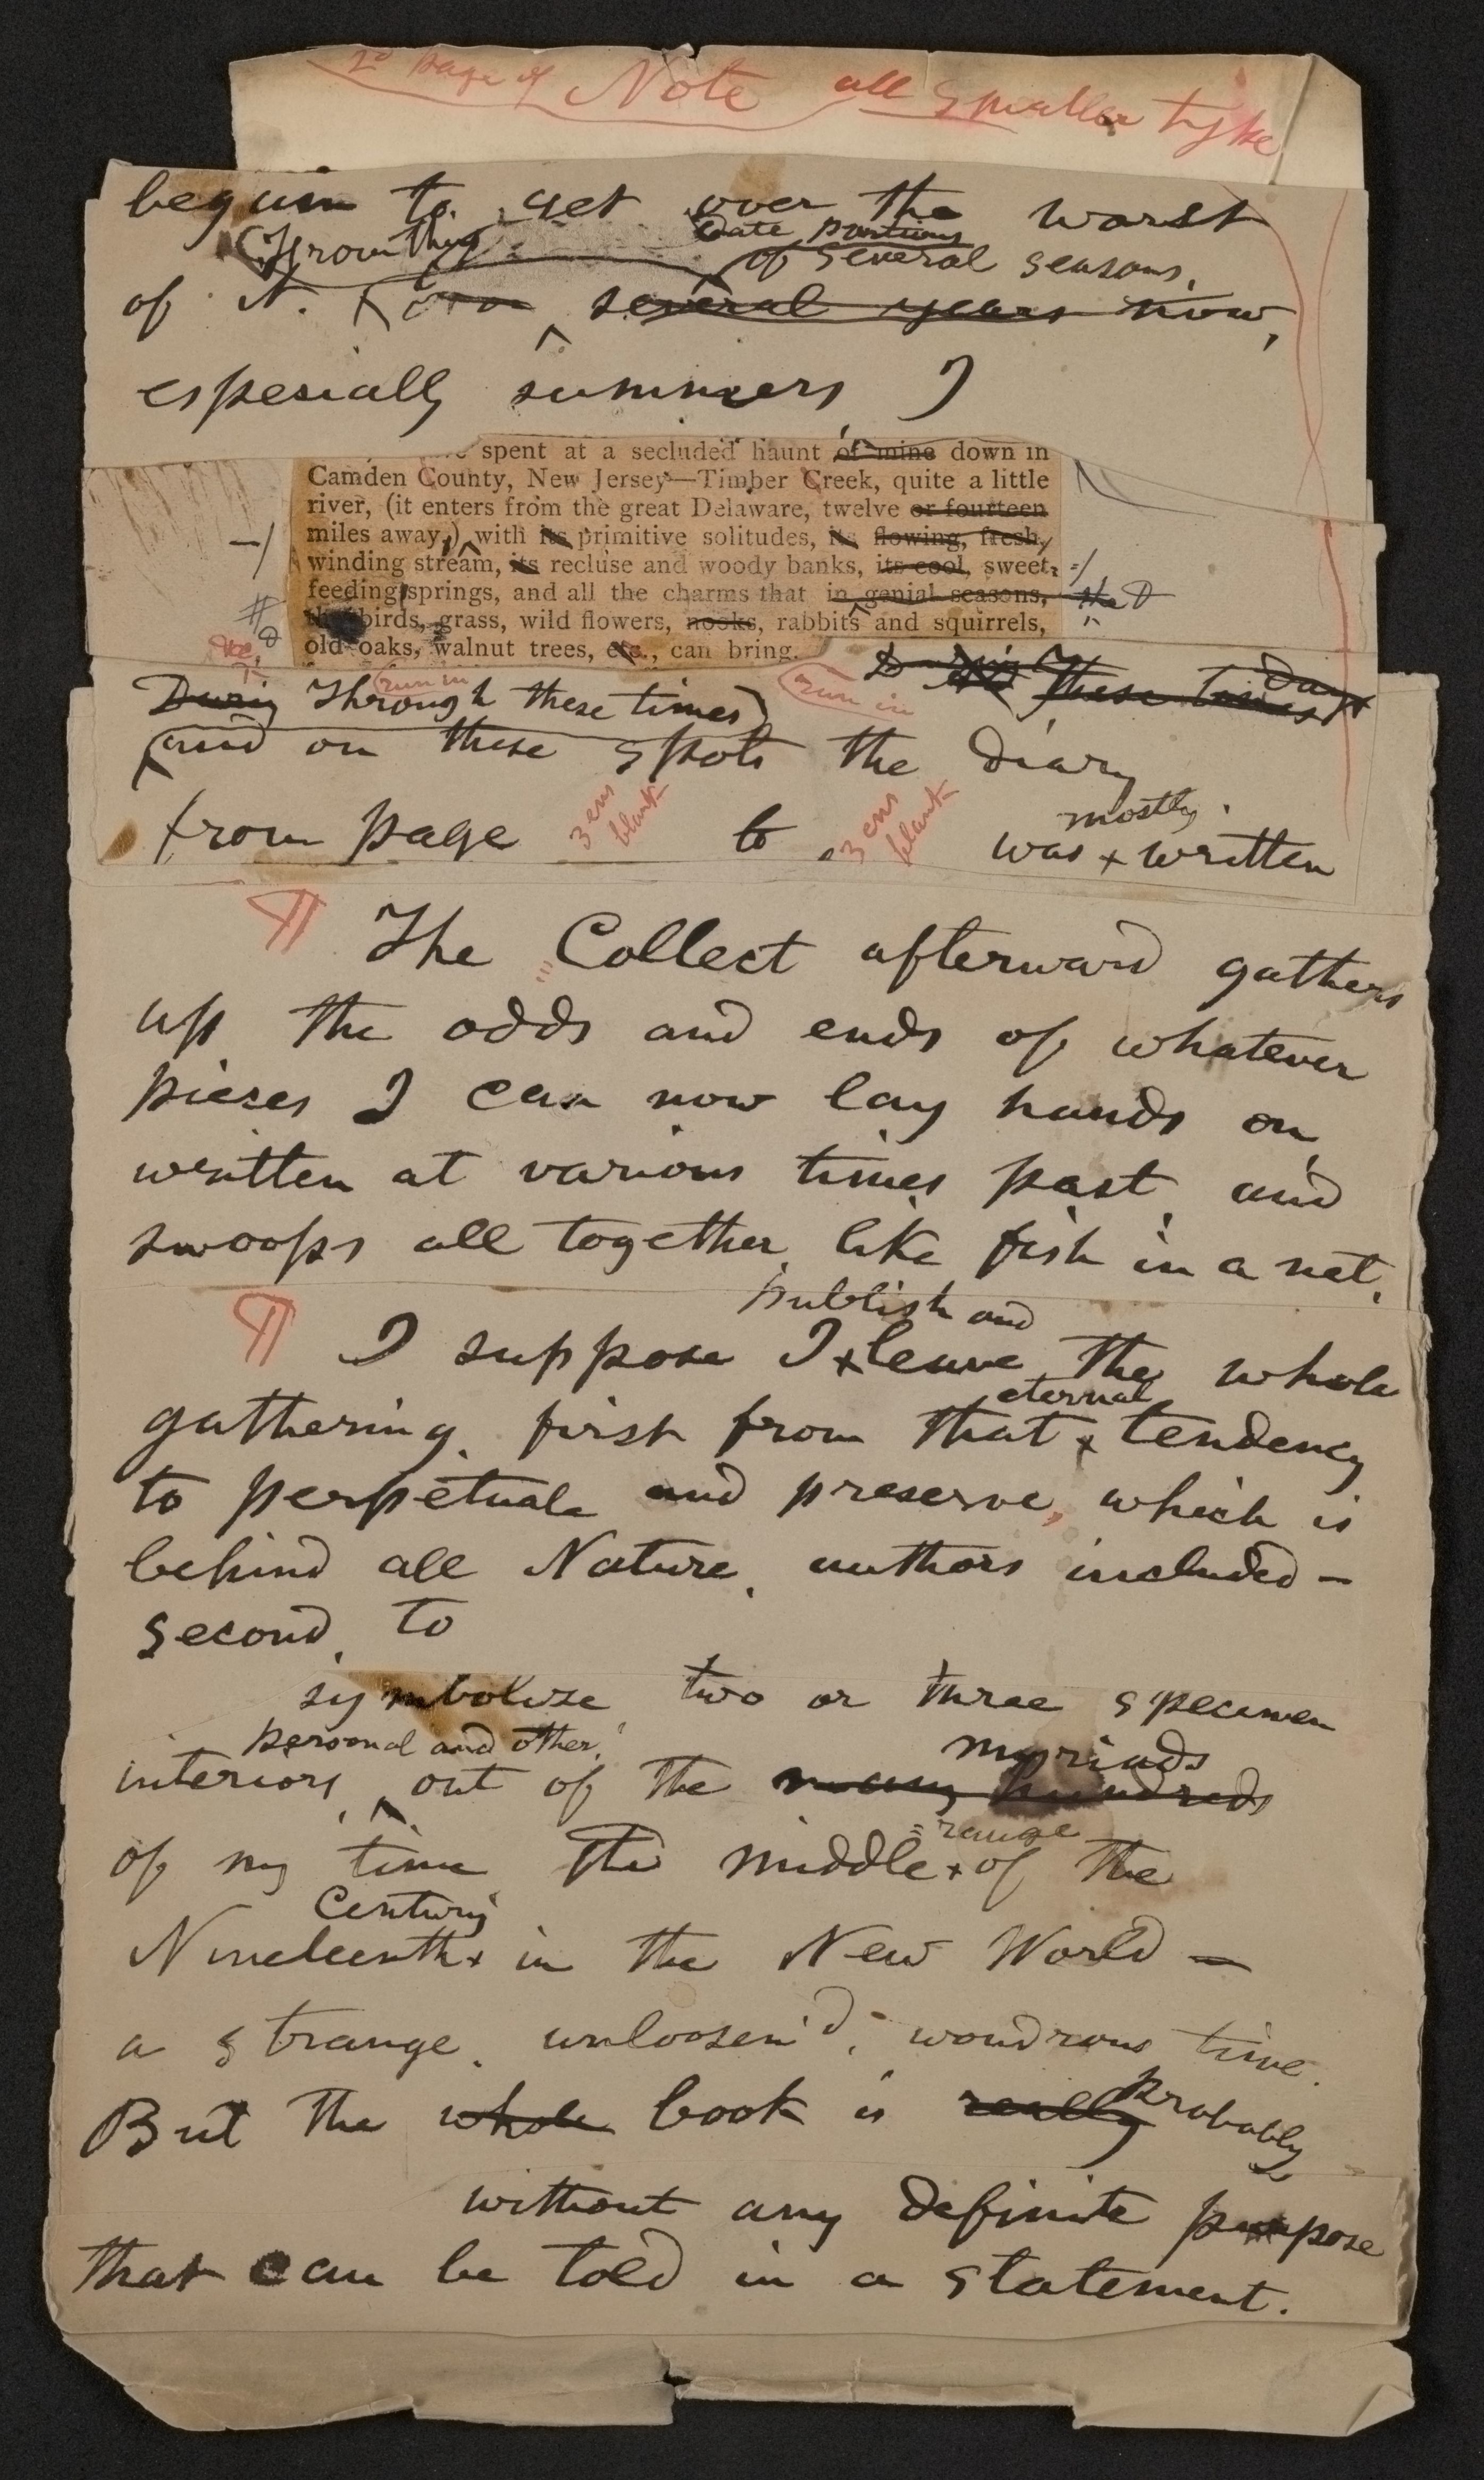 2d page of Note all smaller type
begun to get over the worst
(Growths date portions
of several seasons,
of it. (From several years now,
especially summers, I
spent at a secluded haunt of mine down in
Camden County, New Jersey—Timber Creek, quite a little
river, (it enters from the great Delaware, twelve or fourteen
miles away,) with its primitive solitudes, its flowing, fresh,
winding stream, its recluse and woody banks, its cool, sweet,
feeding springs, and all the charms that in genial seasons, the
the birds, grass, wild flowers, nooks, rabbits and squirrels,
old oaks, walnut trees, etc., can bring.
run in
run in
During these times days
During Through these times)
(and on these spots the diary
3 ens blank
3 ens blank
mostly
from page to was written
¶ The Collect afterward gathers
up the odds and ends of whatever
pieces I can now lay hands on,
written at various times past, and
swoops all together like fish in a net.
publish and
¶ I suppose I leave the whole
eternal
gathering, first from that tendency
to perpetuate and preserve, which is
behind all Nature, authors included—
second, to
symbolize two or three specimen
personal and other, myriads
interiors, out of the many hundreds
range
of my time, the middle of the
Century
Nineteenth in the New World—
a strange, unloosen'd, wondrous time.
probably
But the whole book is really
without any definite purpose
that can be told in a statement.